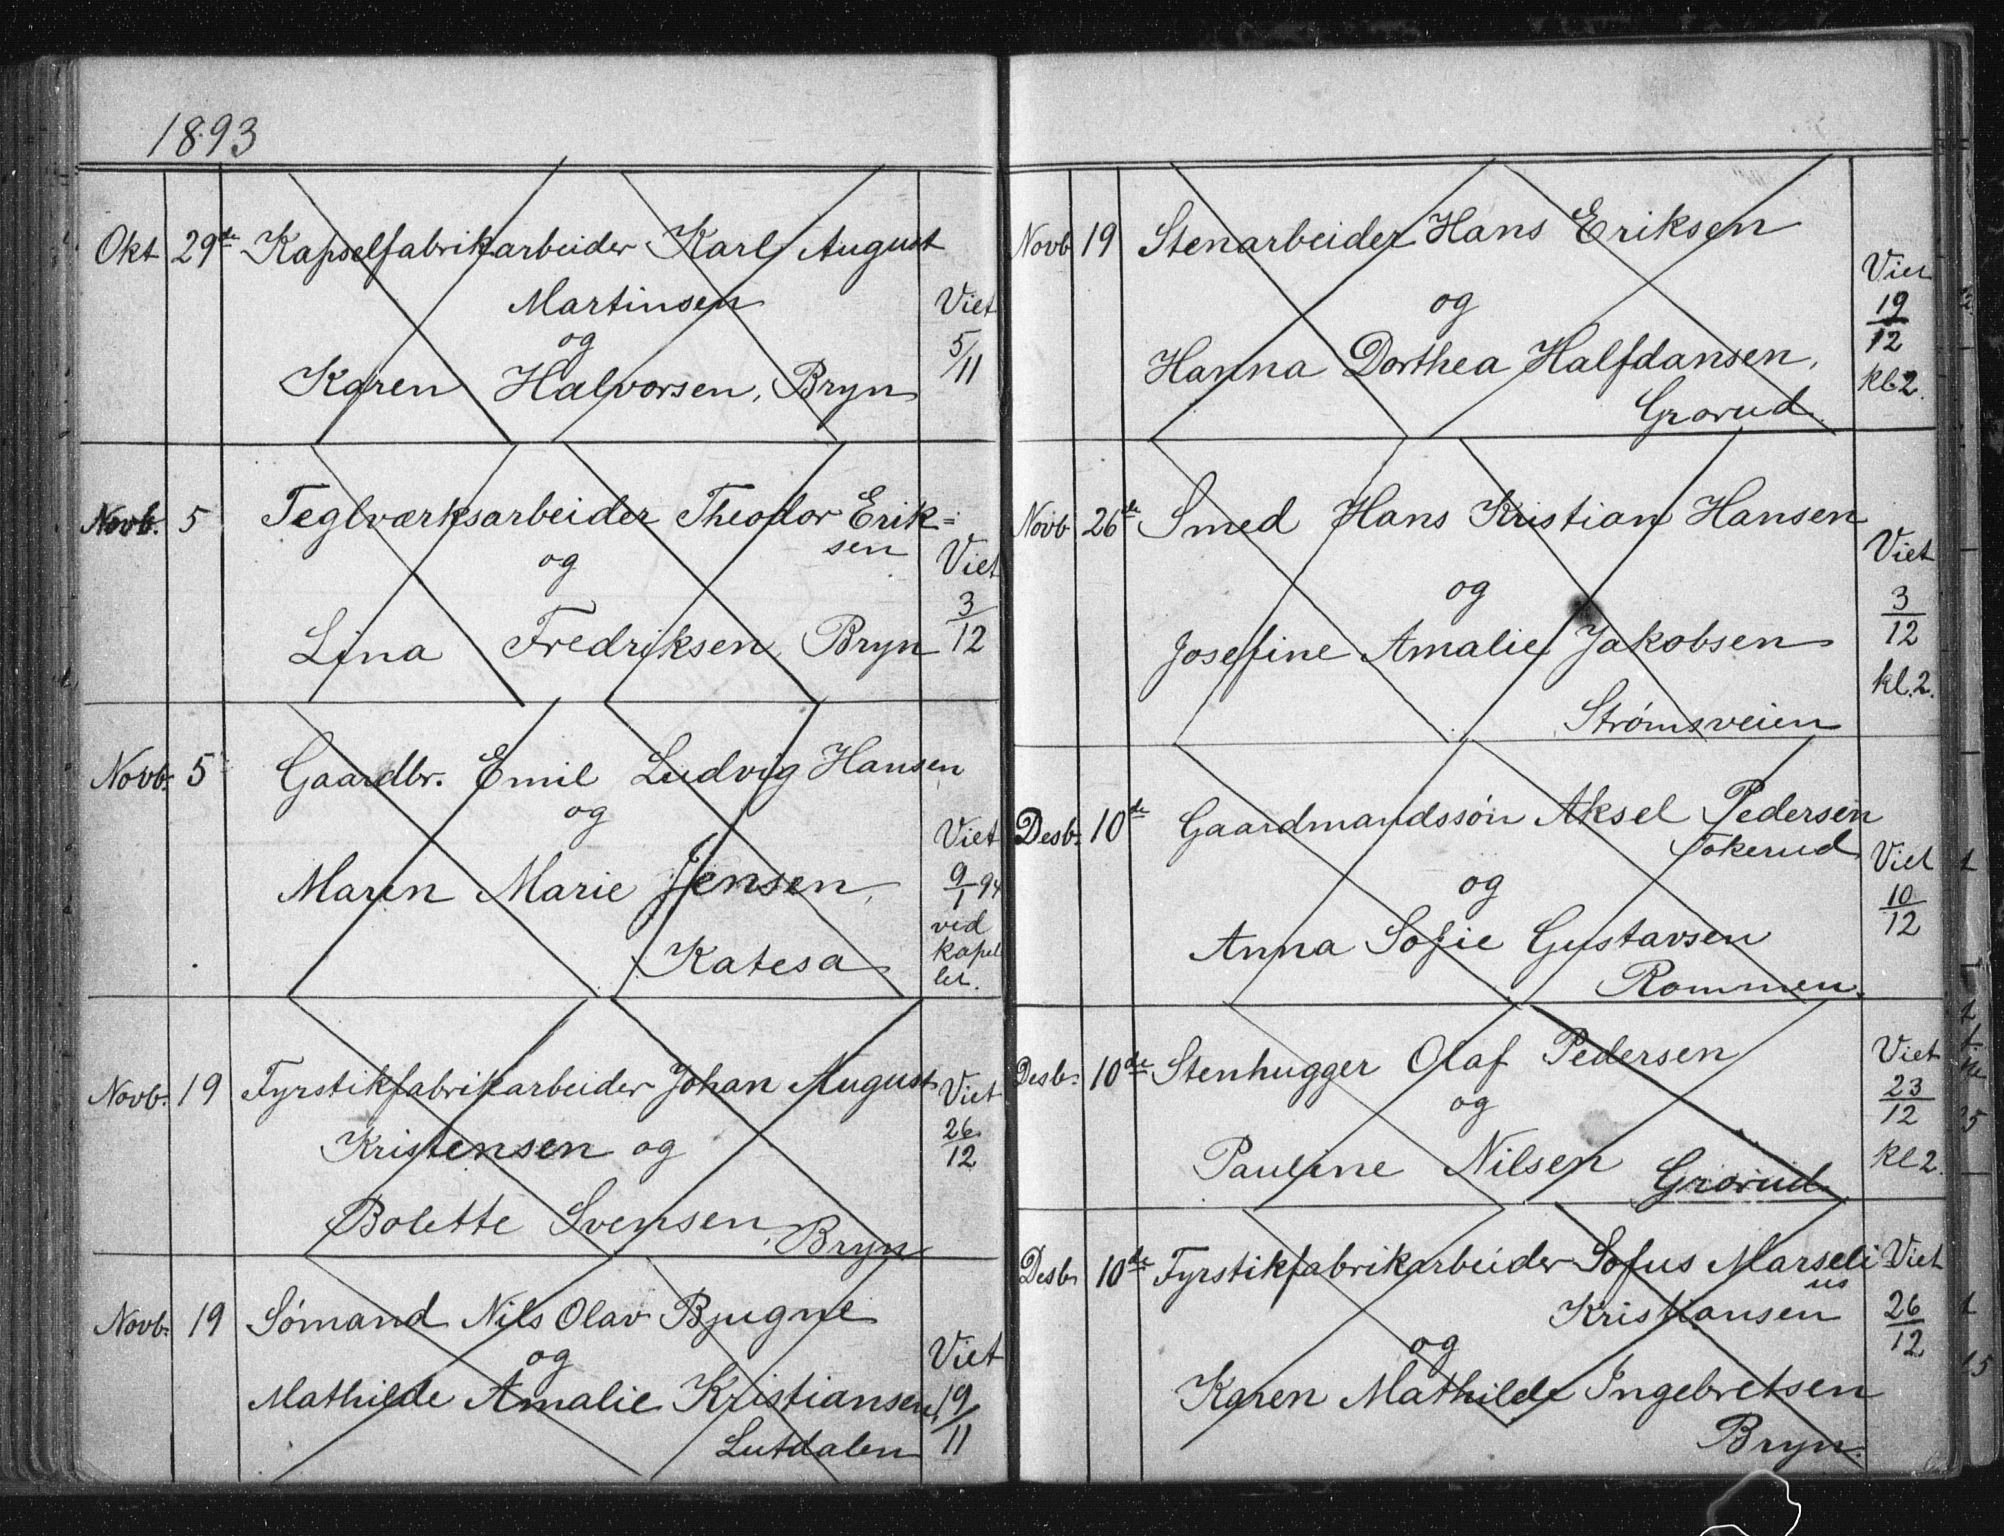 1893
Okt 29de Kapselfabrikarbeider Karl August
Martinsen
og
Karen Halvorsen, Bryn
Viet
5/11
Novb. 5 Teglværksarbeider Theodor Erik=
sen
og
Lina Fredriksen, Bryn
Viet
3/12
Novb. 5 Gaardbr. Emil Ludvig Hansen
og
Maren Marie Jensen,
Katesa
Viet
9/1 94
ved
kapel
let.
Novb. 19 Fyrstikfabrikarbeider Johan August
Kristensen og
Bolette Svensen, Bryn
Viet
26/12
Novb. 19 Sømand Nils Olav Bjugne
og
Mathilde Amalie Kristiansen,
Lutdalen
Viet
19/11
Novb 19 Stenarbeider Hans Eriksen
og
Hanna Dorthea Halfdansen,
Grorud.
Viet
19/12
kl.2.
Novb 26de Smed Hans Kristian Hansen
og
Josefine Amalie Jakobsen
Strømsveien
Viet
3/12
kl.2.
Desb. 10de Gaardmandssøn Aksel Pedersen
Tokerud
og
Anna Sofie Gustavsen
Rommen.
Viet
10/12
Desb. 10de Stenhugger Olaf Pedersen
og
Pauline Nilsen Grorud.
Viet
23/12
kl 2.
Desb. 10de Fyrstikfabrikarbeider Sofus Marseli
us
Kristiansen
og
Karen Mathilde Ingebretsen
Bryn.
Viet
26/12